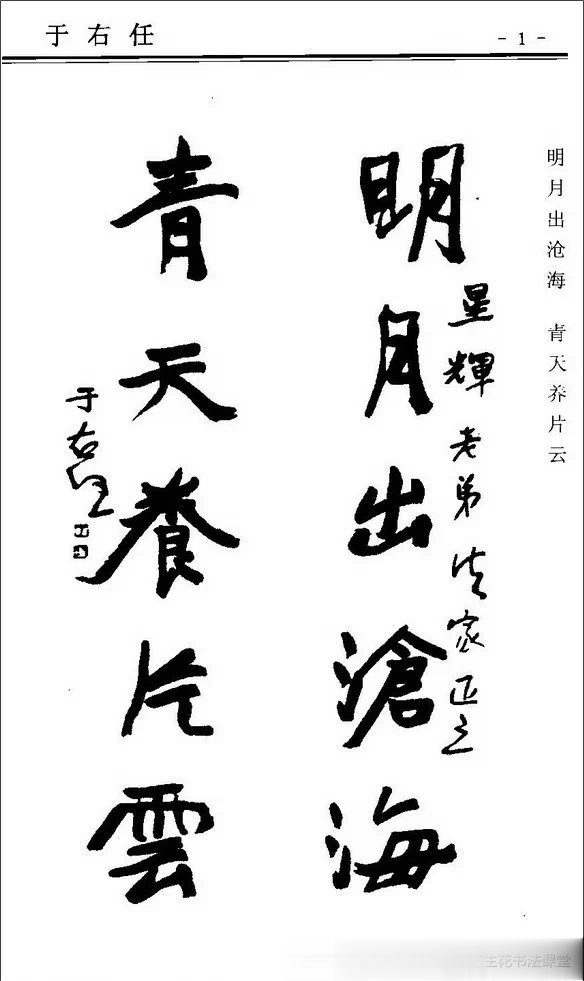 于右任
- 1 -
明月出沧海 青天养片云
星輝老弟法家正之
明月出滄海
青天養片雲
于右任
生花书法课堂